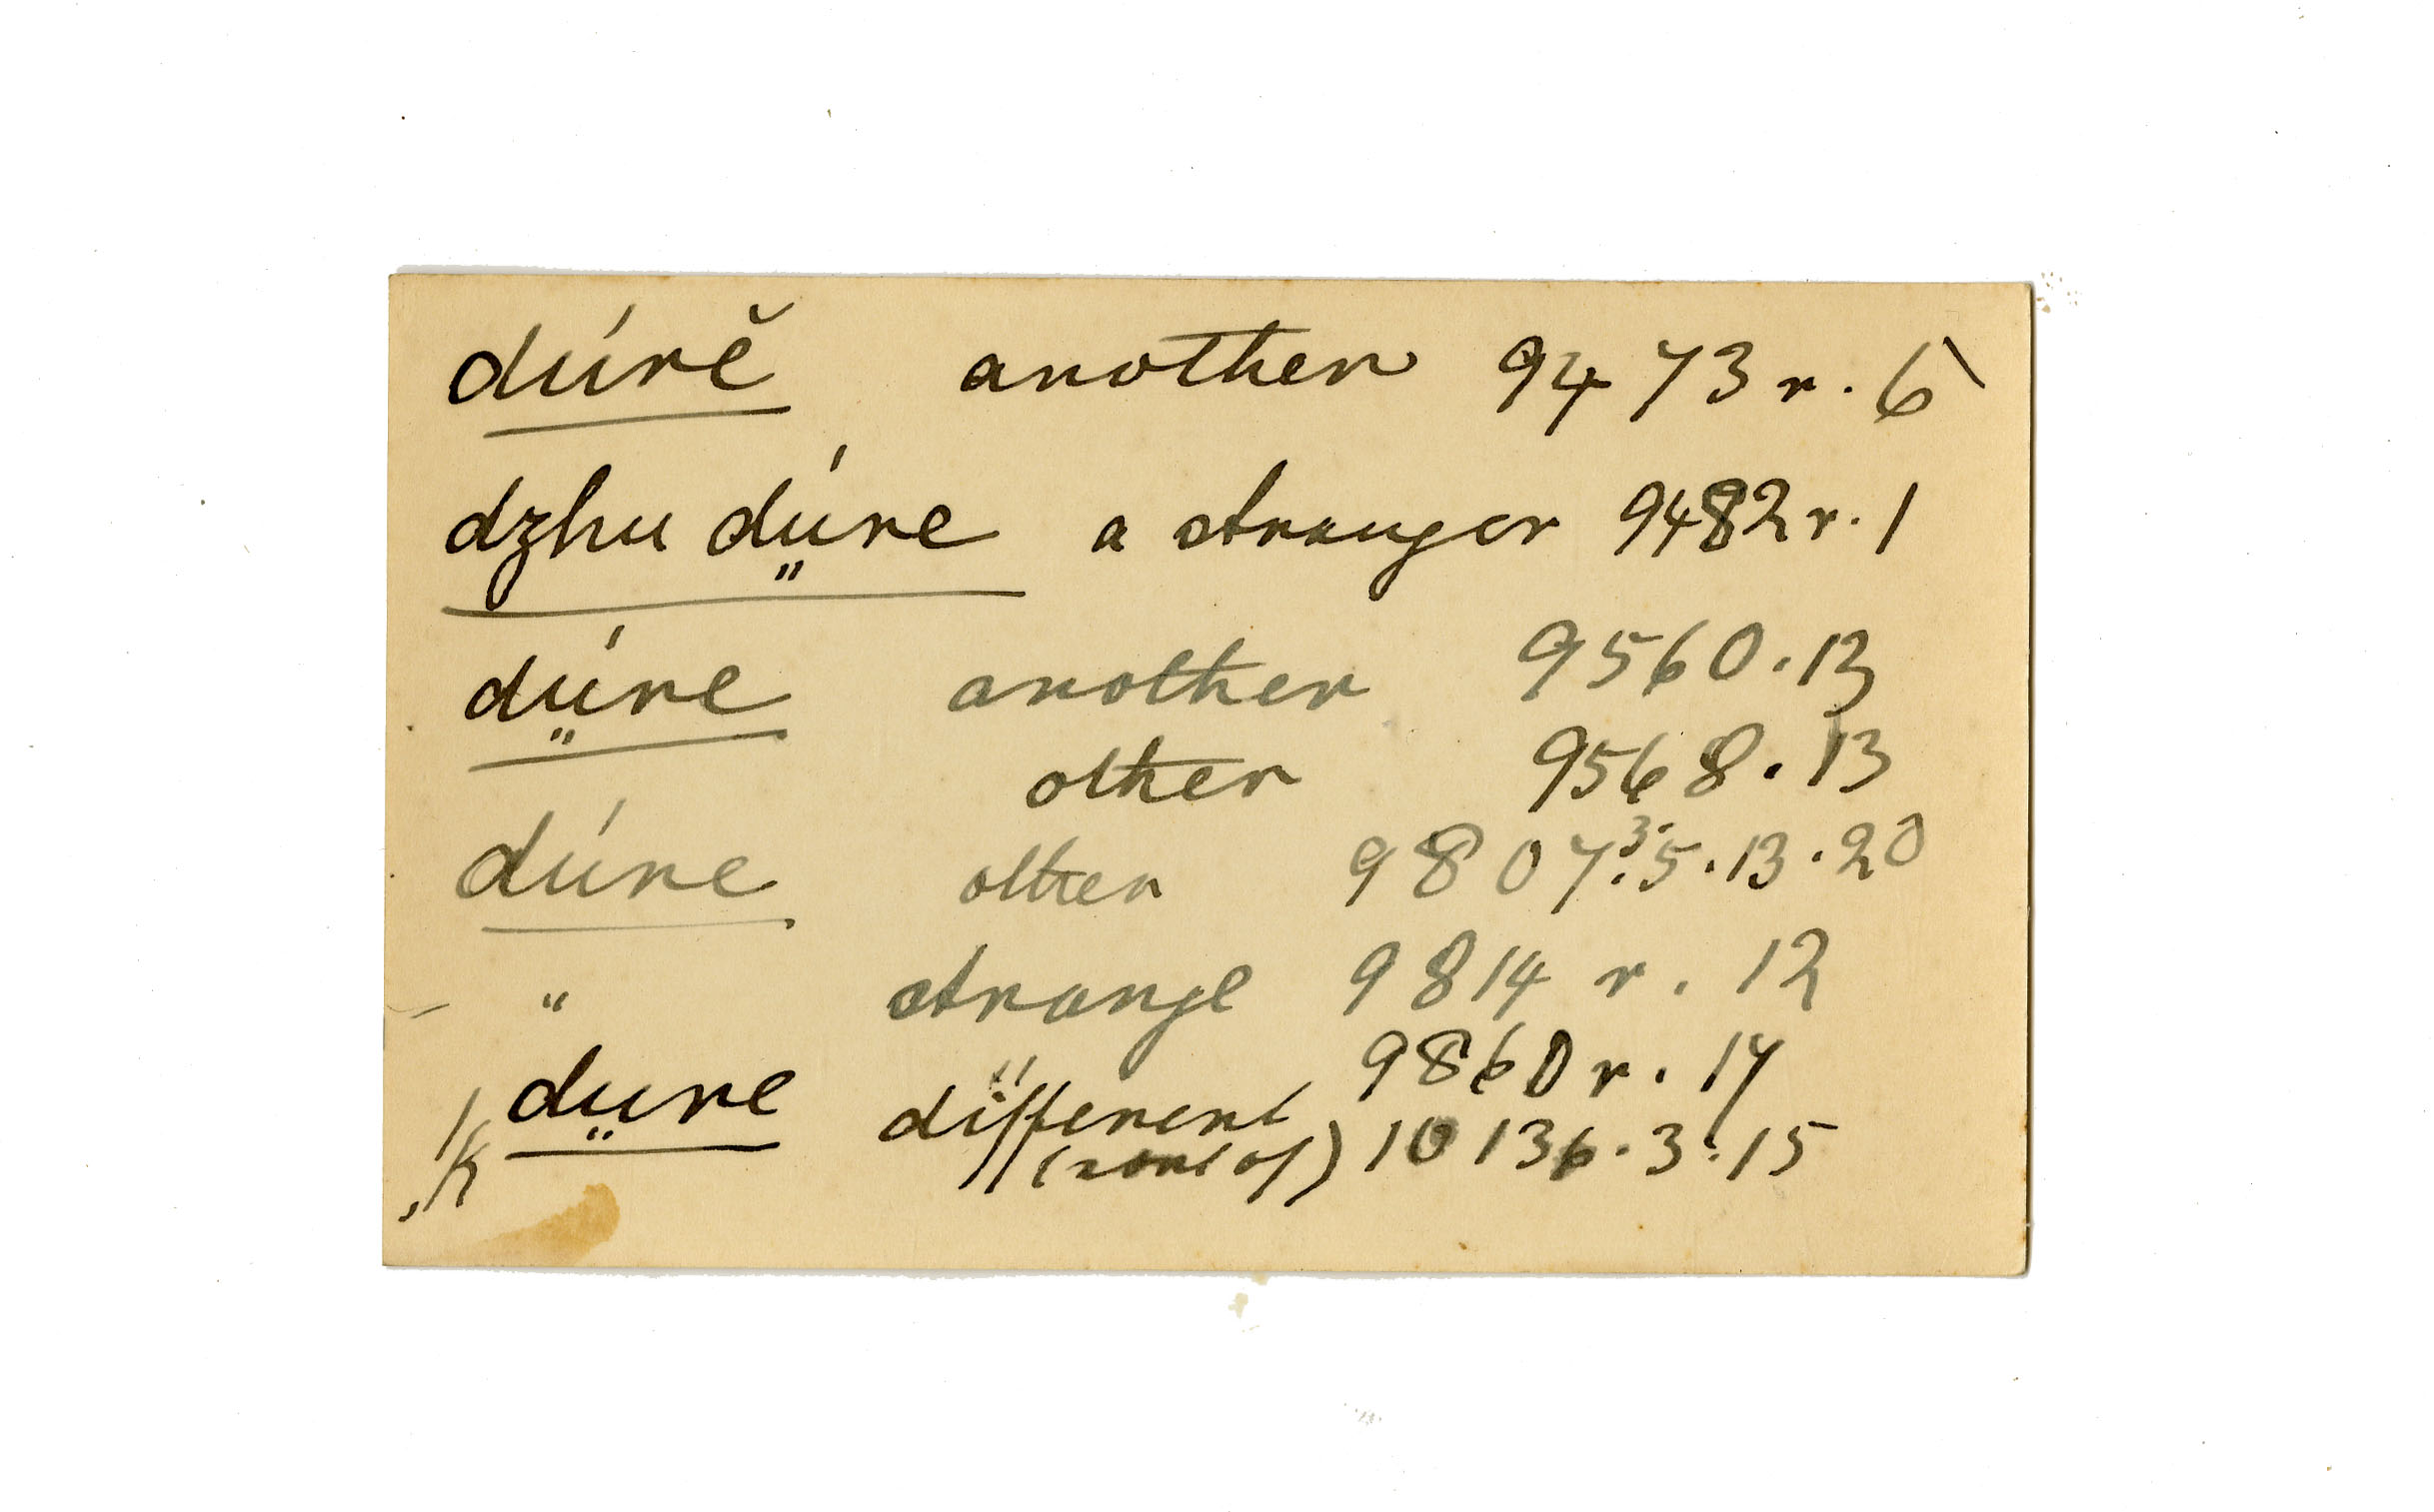 dúrĕ another 9473 r. 6
dzhu dṳ́re a stranger 9482 r. 1
dṳ́re another 9560. 13
other 9568. 13
dúre other 9807. 3. 5. 13. 20
" strange 9814 r. 12
" 9860 r. 17
K dṳre different 10136. 3. 15
K (sort of)